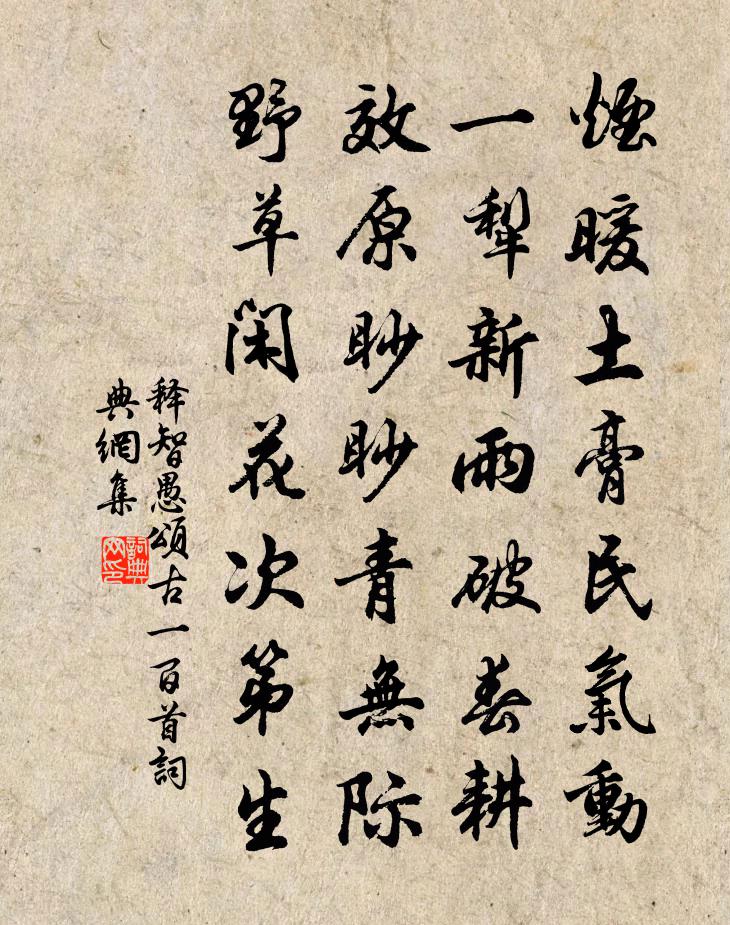 煙暖土膏民氣動
一犁新雨破春耕
效原眇眇青無际
野草閑花次第生
释智愚頌古一百首詞
典網集
詞典
网印